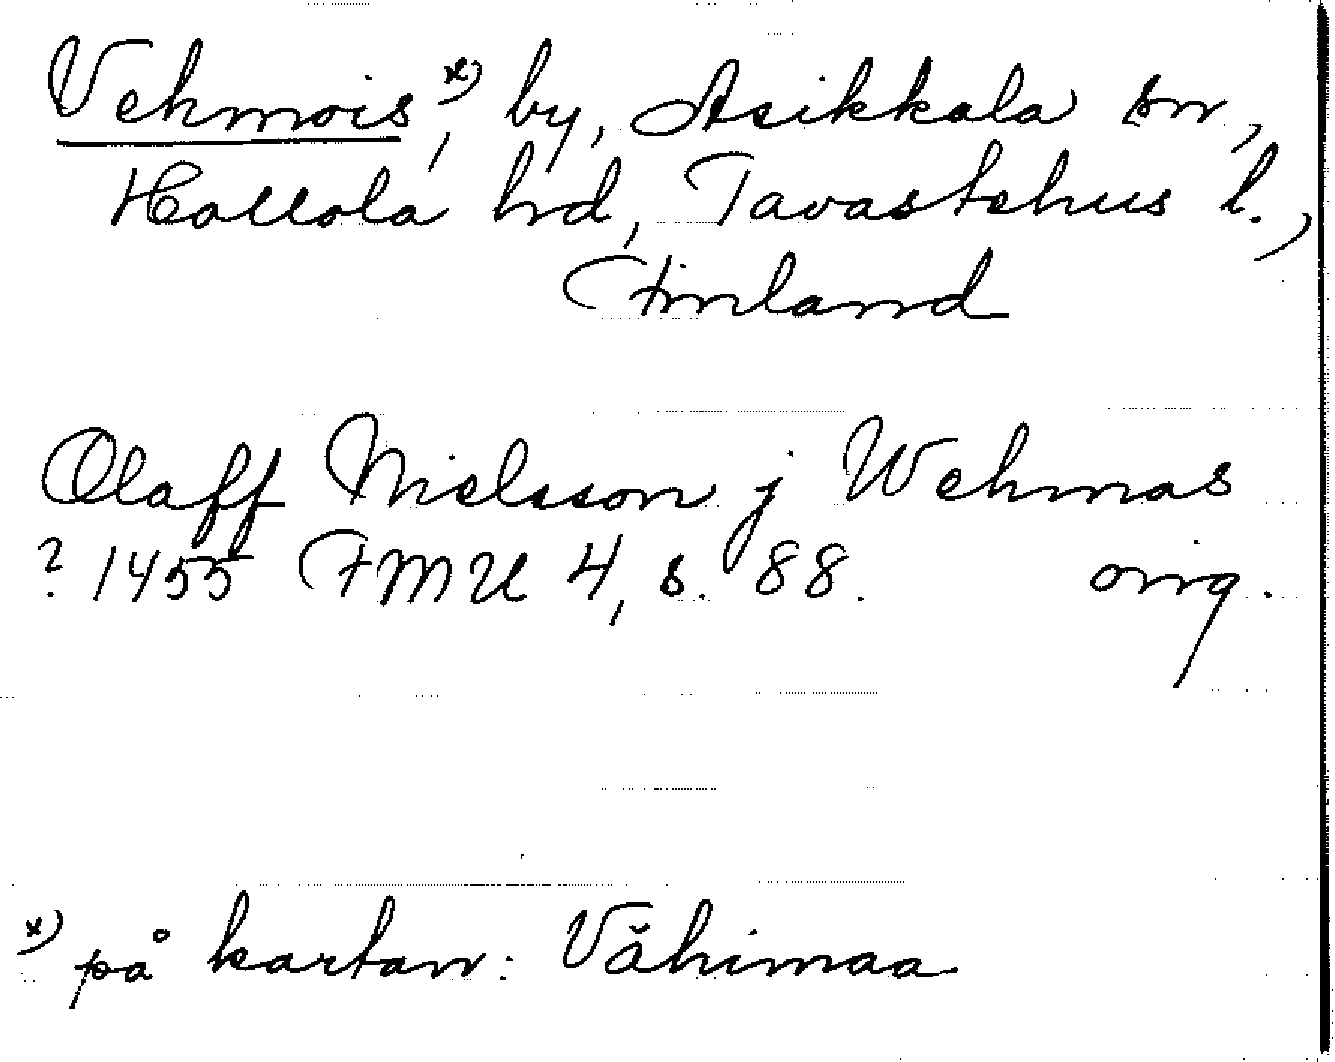 Vehmois,*) by, Asikkala sn,
Hollola hd, Tavastehus l.,
Finland
Olaff Nielsson j Wehmas
? 1455 FMU 4, s. 88. orig.
*) på kartan: Vähimaa